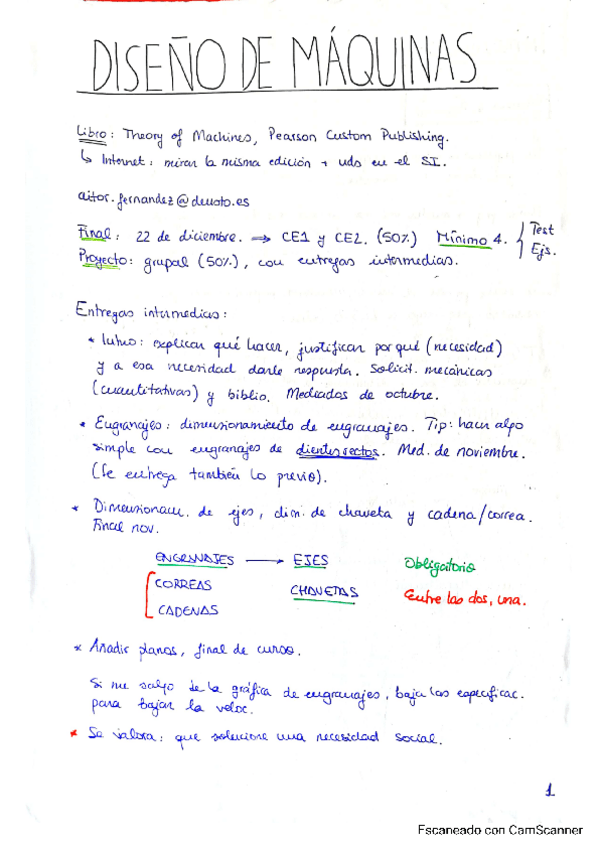 DISEÑO DE MÁQUINAS
Libro: Theory of Machines, Pearson Custom Publishing.
↳ Internet: mirar la misma edición + uds en el SI.
aitor.fernandez@deusto.es
Final: 22 de diciembre. → CE1 y CE2. (50%) Mínimo 4. { Test
Ejs.
Proyecto: grupal (50%), con entregas intermedias.
Entregas intermedias:
* Intro: explicar qué hacer, justificar por qué (necesidad)
y a esa necesidad darle respuesta. Solicit. mecánicas
(cuantitativas) y biblio. Mediados de octubre.
* Engranajes: dimensionamiento de engranajes. Tip: hacer algo
simple con engranajes de dientes rectos. Med. de noviembre.
(Se entrega también lo previo).
* Dimensionam. de ejes, dim. de chaveta y cadena/correa.
Final nov.
ENGRANAJES → EJES Obligatorio
CORREAS CHAVETAS Entre las dos, una.
CADENAS
* Añadir planos, final de curso.
Si me salgo de la gráfica de engranajes, baja las especificac.
para bajar la veloc.
* Se valora: que solucione una necesidad social.
1
Escaneado con CamScanner